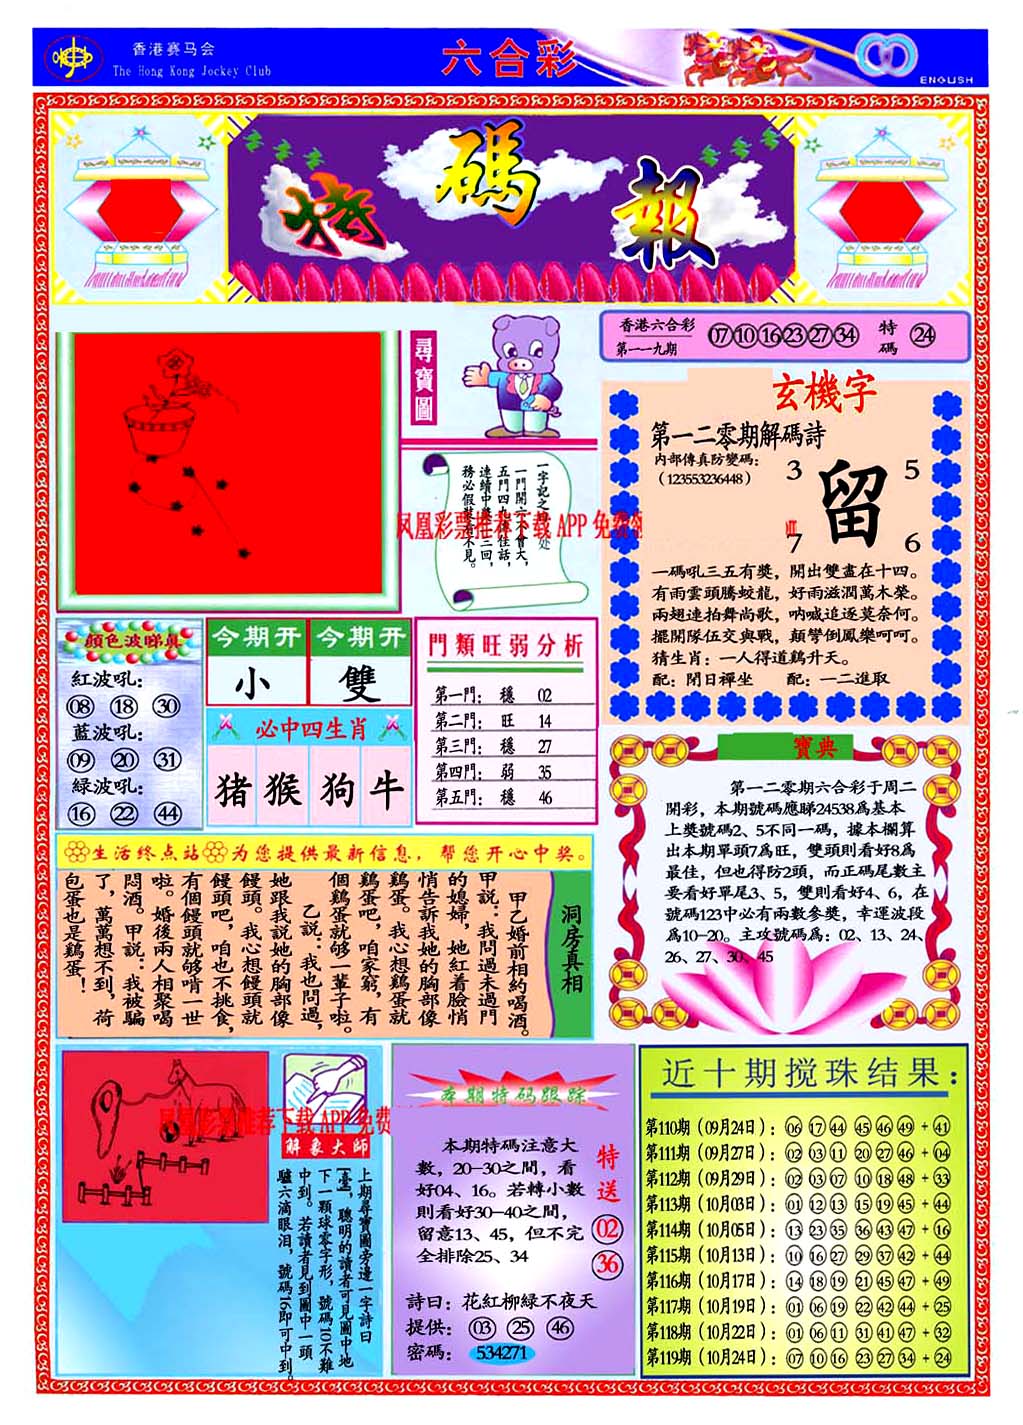 香港赛马会
The Hong Kong Jockey Club
六合彩
ENGLISH
特碼報
尋寶圖
香港六合彩
第一一九期
07 10 16 23 27 34
特碼
24
玄機字
第一二零期解碼詩
内部傳真防變碼:
(123553236448)
3
5
留
7
6
一碼吼三五有獎,開出雙盡在十四。
有雨雲頭騰蛟龍,好雨滋潤萬木榮。
兩翅連拍舞尚歌,呐喊追逐莫奈何。
擺開隊伍交與戰,顛彎倒鳳樂呵呵。
猜生肖:一人得道鷄升天。
配:閉日禪坐 配:一二進取
一門開六不會大,
五門四九傳佳話,
連續中獎二三回,
務必假裝看不見。
凤凰彩票推荐下载 APP 免费
顔色波睇真
紅波吼:
08 18 30
藍波吼:
09 20 31
緑波吼:
16 22 44
今期开
小
今期开
雙
必中四生肖
猪 猴 狗 牛
門類旺弱分析
第一門: 穩 02
第二門: 旺 14
第三門: 穩 27
第四門: 弱 35
第五門: 穩 46
寶典
第一二零期六合彩于周二
開彩,本期號碼應睇24538爲基本
上獎號碼2、5不同一碼,據本欄算
出本期單頭7爲旺,雙頭則看好8爲
最佳,但也得防2頭,而正碼尾數主
要看好單尾3、5,雙則看好4、6,在
號碼123中必有兩數參獎,幸運波段
爲10-20。主攻號碼爲:02、13、24、
26、27、30、45
生活终点站 为您提供最新信息,帮您开心中奖。
洞房真相
甲乙婚前相約喝酒。
甲説:我問過未過門
的媳婦,她紅着臉悄
悄告訴我她的胸部像
鷄蛋。我心想鷄蛋就
鷄蛋吧,咱家窮,有
個鷄蛋就够一輩子啦。
乙説:我也問過,
她跟我説她的胸部像
饅頭。我心想饅頭就
饅頭吧,咱也不挑食,
有個饅頭就够啃一世
啦。婚後兩人相聚喝
悶酒。甲説:我被騙
了,萬萬想不到,荷
包蛋也是鷄蛋!
凤凰彩票推荐下载 APP 免费
解象大師
上期尋寶圖旁邊一字詩曰
「臺」,聰明的讀者可見圖中地
下一顆球零字形,號碼10不難
中到。若讀者見到圖中一頭
驢六滴眼泪,號碼16即可中到。
本期特码跟踪
本期特碼注意大
數,20-30之間,看
好04、16。若轉小數
則看好30-40之間,
留意13、45,但不完
全排除25、34
特送
02
36
詩曰:花紅柳緑不夜天
提供: 03 25 46
密碼: 534271
近十期搅珠结果:
第110期(09月24日): 06 17 44 45 46 49 + 41
第111期(09月27日): 02 03 11 20 27 46 + 04
第112期(09月29日): 02 03 07 10 18 48 + 33
第113期(10月03日): 01 12 13 15 19 45 + 44
第114期(10月05日): 13 23 35 36 43 47 + 16
第115期(10月13日): 10 16 27 29 37 42 + 44
第116期(10月17日): 14 18 19 21 45 47 + 49
第117期(10月19日): 01 06 19 22 42 44 + 25
第118期(10月22日): 01 06 11 31 41 47 + 32
第119期(10月24日): 07 10 16 23 27 34 + 24